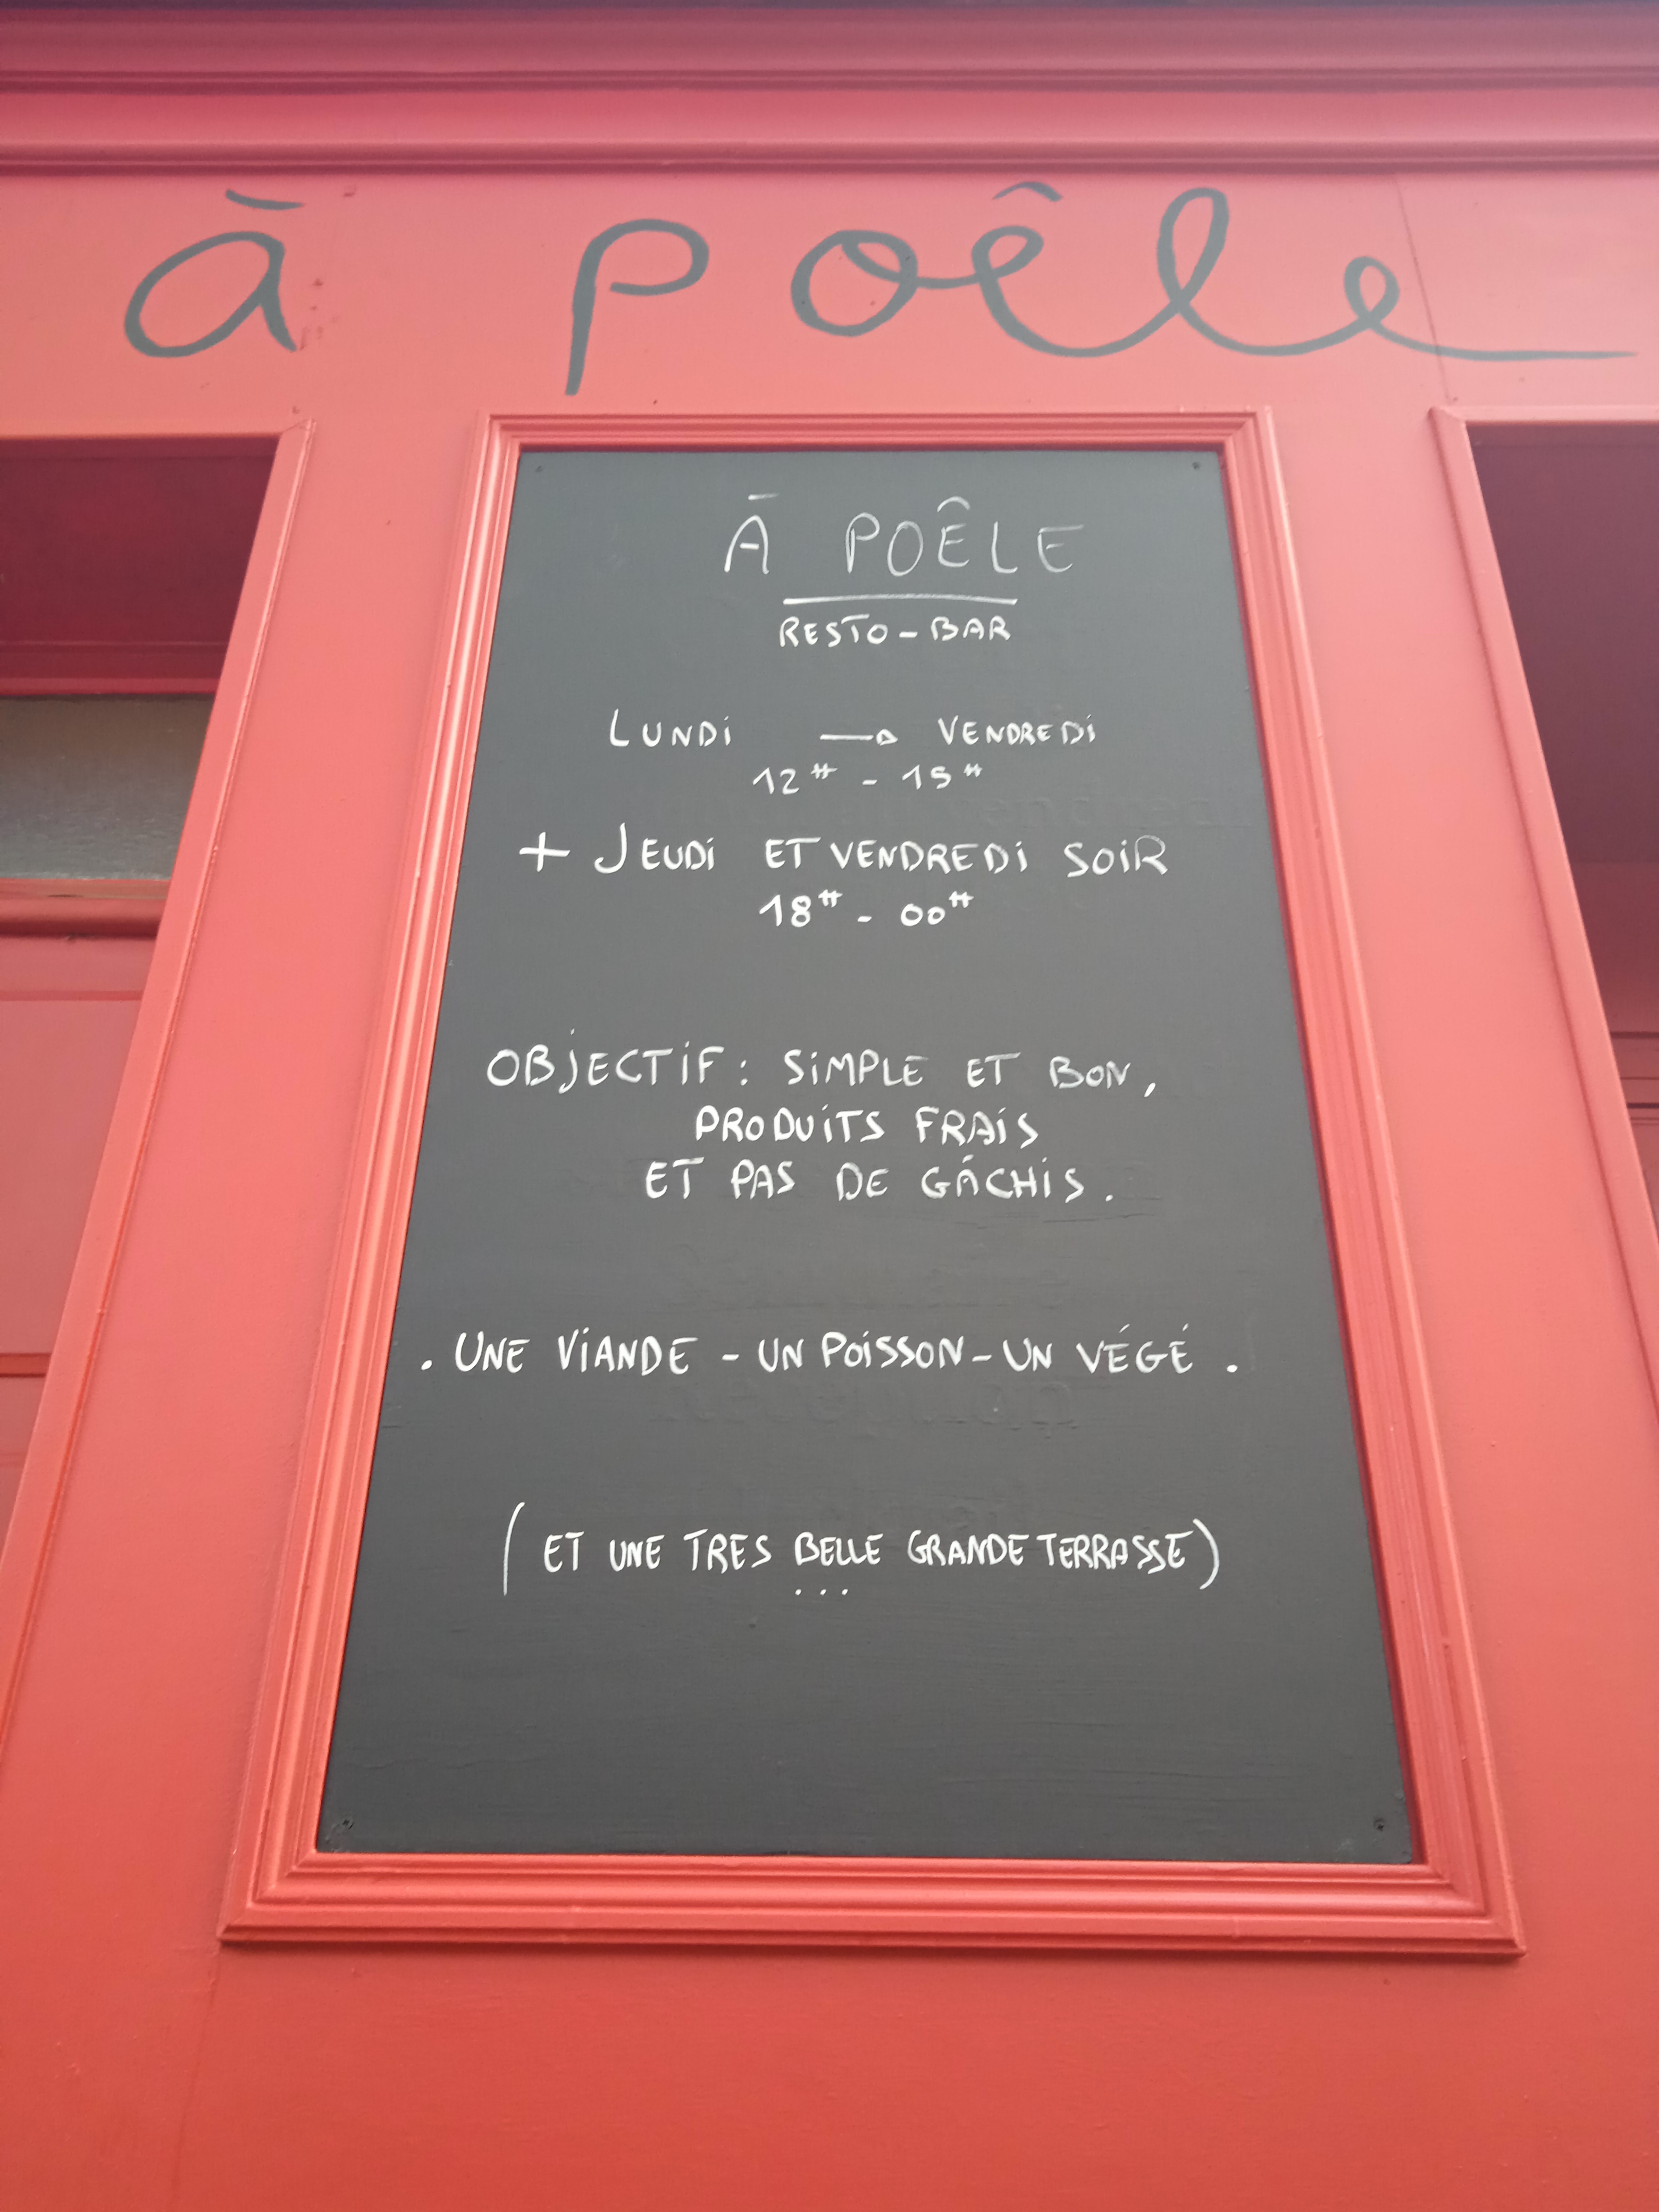 à poêle
À POÊLE
RESTO-BAR
LUNDi → VENDREDi
12H - 15H
+ JEUDi ET VENDREDi SOiR
18H - 00H
OBJECTiF : SiMPLE ET BON,
PRODUiTS FRAiS
ET PAS DE GÂCHiS.
. UNE ViANDE - UN POiSSON - UN VÉGÉ .
(ET UNE TRES BELLE GRANDE TERRASSE)
...